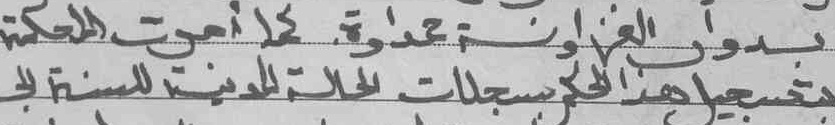 بدوار الغزاونة حمداوة. كما أمرت المحكمة
بتسجيل هذا الحكم بسجلات الحالة المدنية للسنة الجا